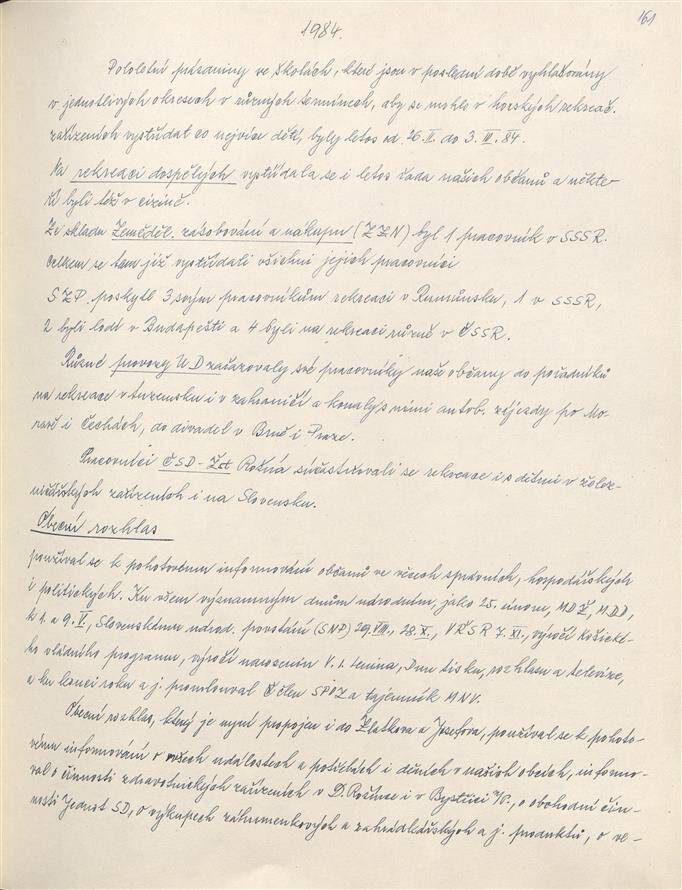 161
1984.
Pololetní prázdniny ve školách, které jsou v poslední době vyhlašovány
v jednotlivých okresech v různých termínech, aby se mohlo v horských rekreač.
zařízeních vystřídat co nejvíce dětí, byly letos od 26. II. do 3. III. 84.
Na rekreaci dospělých vystřídala se i letos řada našich občanů a někte-
ří byli též v cizině.
Ze skladu Zeměděl. zásobování a nákupu (ZZN) byl 1 pracovník v SSSR.
Celkem se tam již vystřídali všichni jejich pracovníci
SZP poskytl 3 svým pracovníkům rekreaci v Rumunsku, 1 v SSSR,
2 byli lodí v Budapešti a 4 byli na rekreaci různě v ČSSR.
Různé provozy UD zařazovaly své pracovníky naše občany do pořadníků
na rekreace v tuzemsku i v zahraničí a konaly s nimi autob. zájezdy po Mo-
ravě i Čechách, do divadel v Brně i Praze.
Pracovníci ČSD - Žst Rožná súčastňovali se rekreace i s dětmi v želez-
ničářských zařízeních i na Slovensku.
Obecní rozhlas
používal se k pohotovému informování občanů ve věcech správních, hospodářských
i politických. Ku všem významným dnům národním, jako 25. únoru, MDŽ, MDD,
k 1. a 9. V., Slovenskému národ. povstání (SNP) 29. VIII., 28. X., VŘSR 7. XI., výročí košické-
ho vládního programu, výročí narození V. I. Lenina, Dnu tisku, rozhlasu a televize,
a ku konci roku a j. promlouval člen SPOZ a tajemník MNV.
Obecní rozhlas, který je nyní propojen i do Zlatkova a Josefova, používal se k pohoto-
vému informování o všech událostech a potřebách i děních v našich obcích, informo-
val o činnosti zdravotnických zařízeních v D. Rožínce i v Bystřici n/P., o obchodní čin-
nosti Jednot SD, o výkupech záhumenkových a zahrádkářských a j. produktů, o ve-